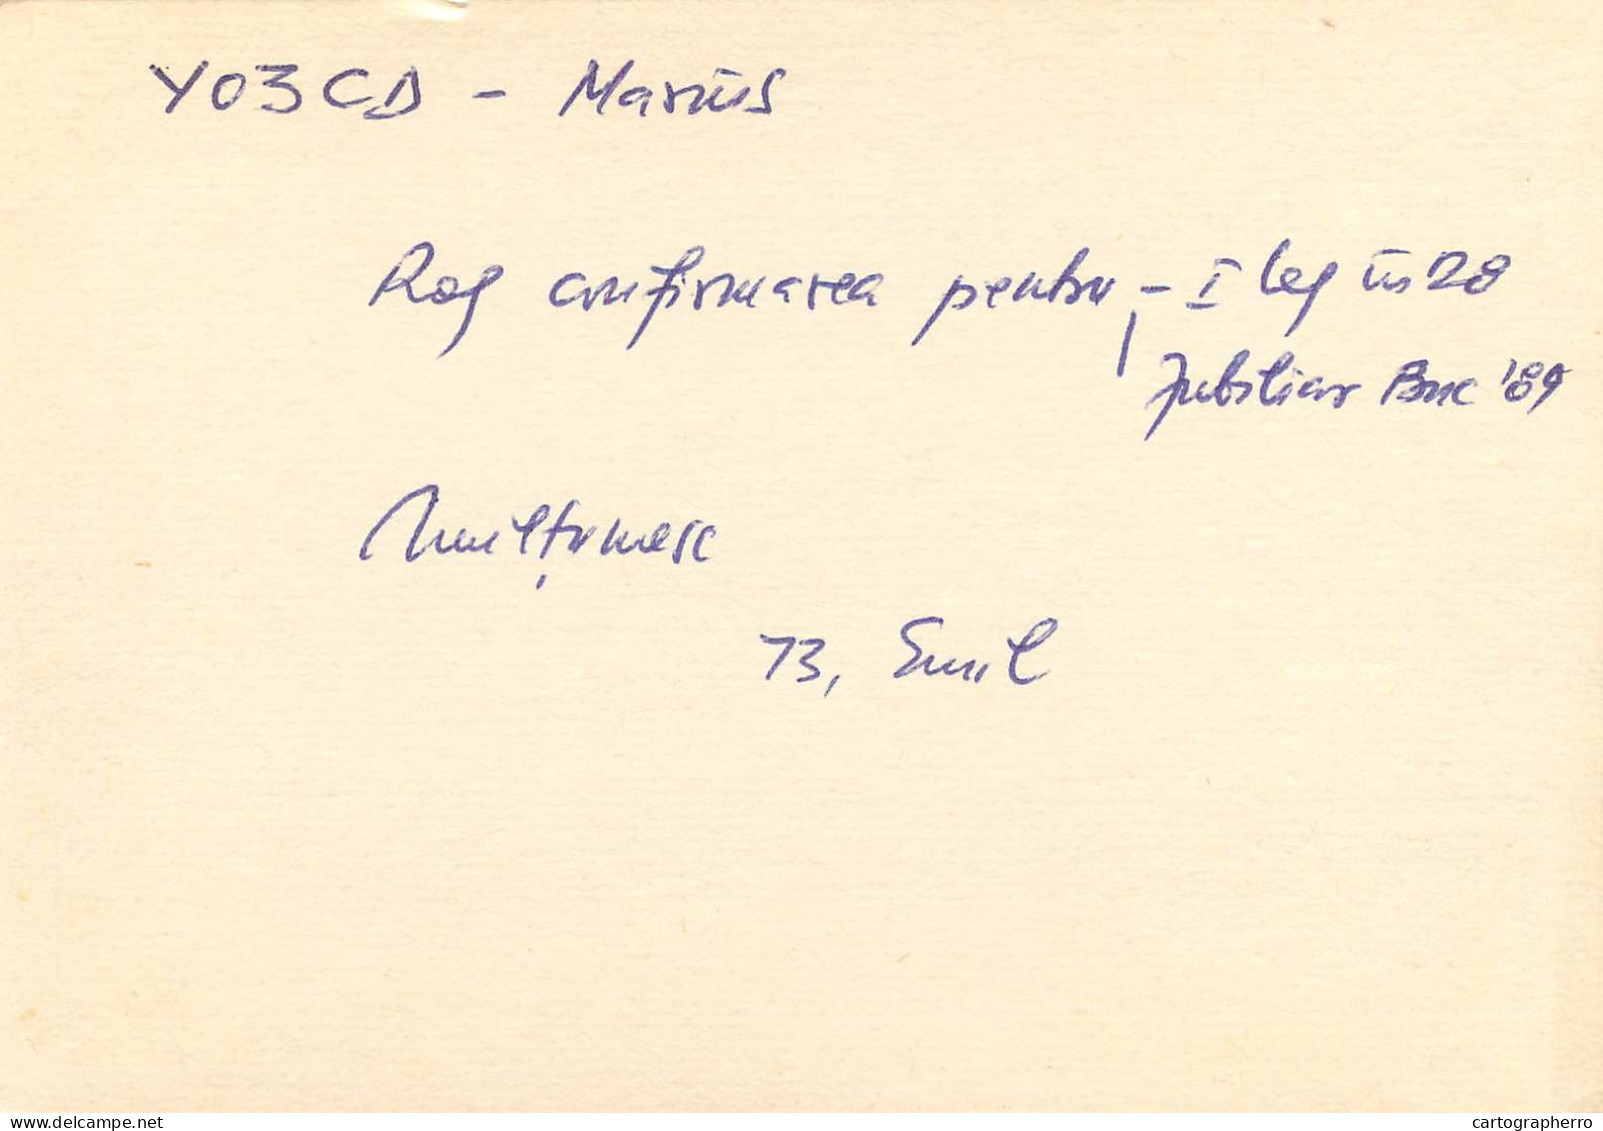 YO3CD - Marius
Rog confirmarea pentru - I leg în 28
Jubiliar Buc '89
Mulțumesc
73, Emil
delcampe.net
cartographerro